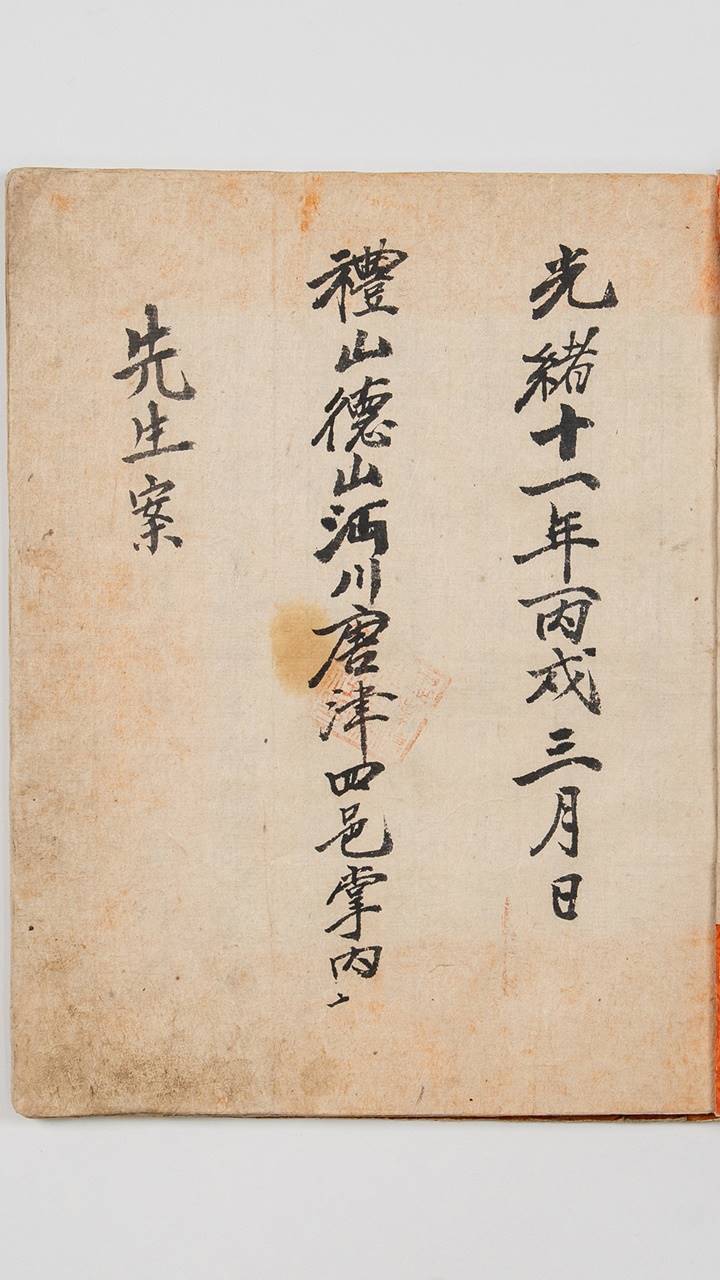 光緖十一年丙戌三月日
禮山德山沔川唐津四邑掌內
先生案